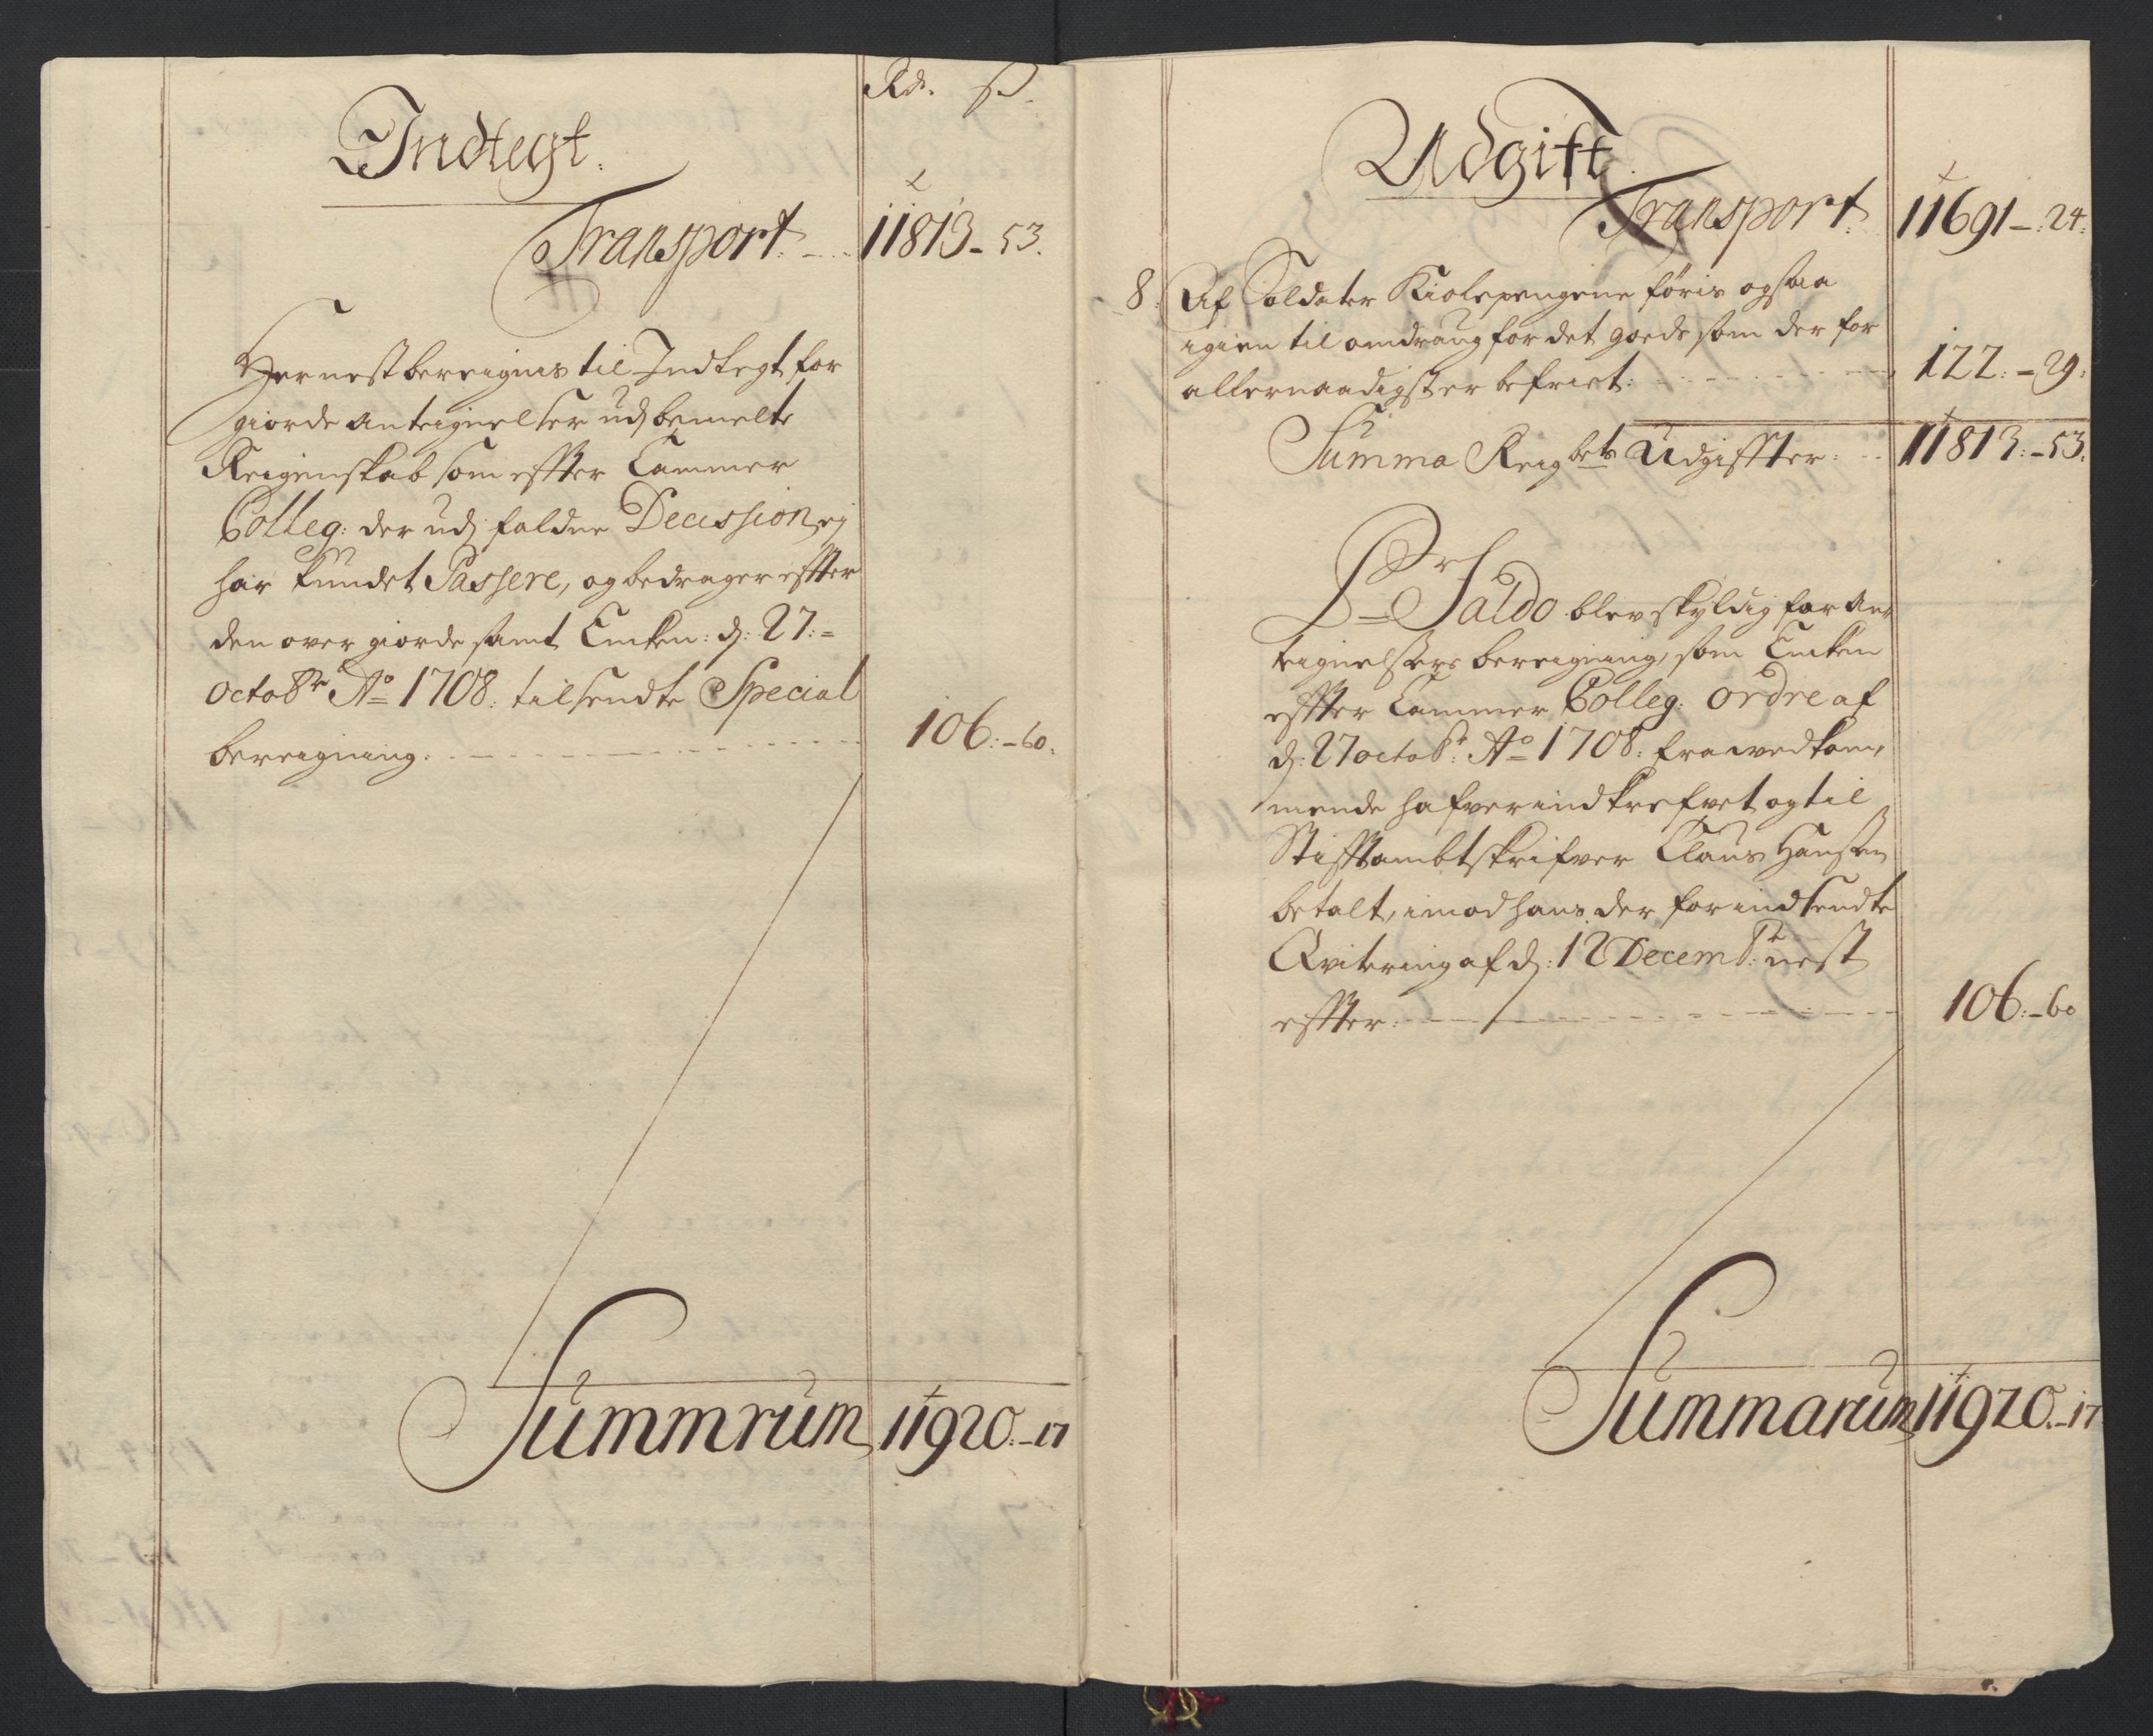 Rd. ß.
Indtegt.
Transport: 11813 - 53.
Hernest bereignis til Indtegt for
giorde Anteignelser udj bemelte
Reigenskab som effter Cammer
Colleg: der udj faldne Decission ej
har kundet Passere, og bedrager effter
den over giorde samt Encken: d: 27:=
octobr Ao 1708: tilsendte Special
bereigning: 106:-60.
Summrum 11920:-17
Udgift
Transport: 11691 -:24:
8: Af Soldater Kiolepengene føris ogsaa
igien til omdraug for det goeds som der for
allernaadigst er befriet: 122:-29:
Summa Reigbets Udgiffter: 11813:-53.
Pr Saldo blev skyldig for An-
teignelsers bereigning, som Encken
effter Cammer Colleg: ordre af
d: 27 octobr: Ao 1708: fra vedkom-
mende hafver indkrefvet og til
Stifftambtskrifver Claus Hansen
betalt, imod hans der for indsendte
Qvitering af d: 12 Decembr: nest
effter: 106:-60
Summarum 11920:-17